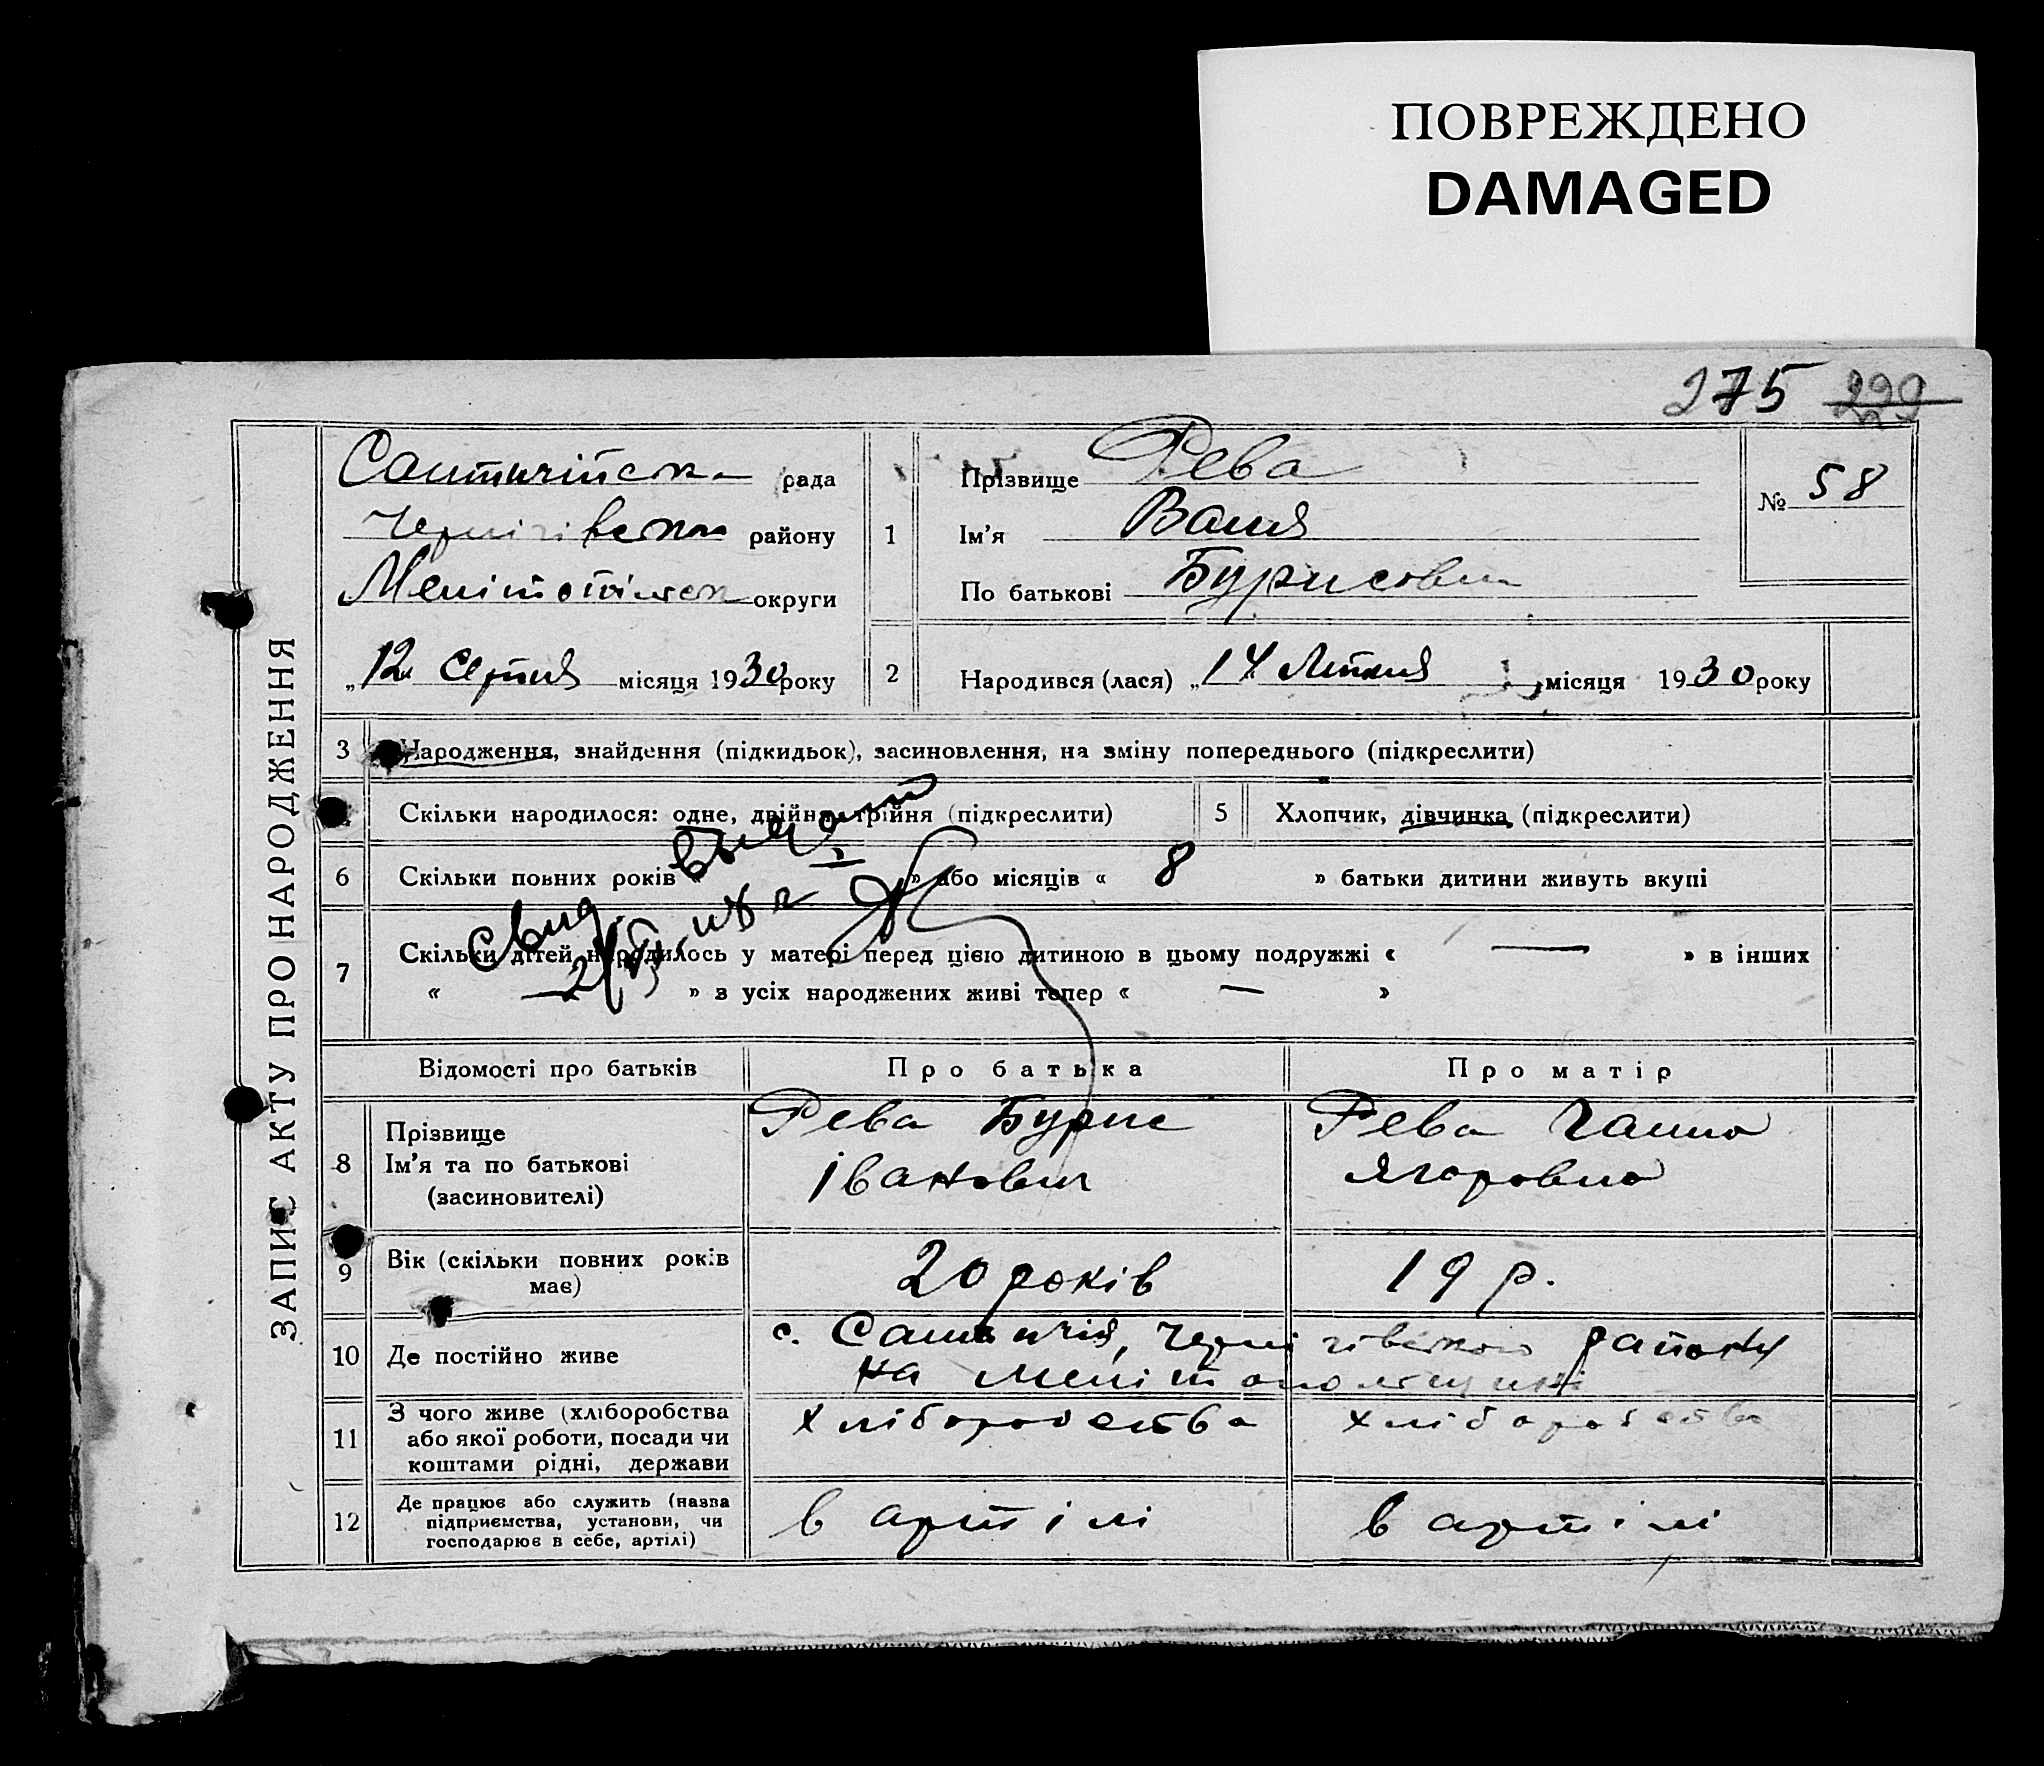 ПОВРЕЖДЕНО
DAMAGED
275 299
ЗАПИС АКТУ ПРО НАРОДЖЕННЯ
рада
Чернігівського району
Мелітопільськ округи
„12 Серпня місяця 1930 року
1
Прізвище Рева
Ім'я Ваня
По батькові Бурисовн
№ 58
2 Народився (лася) „14 Липня місяця 1930 року
3 Народження, знайдення (підкидьок), засиновлення, на зміну попереднього (підкреслити)
Скільки народилося: одне, двійня, трійня (підкреслити)
5 Хлопчик, дівчинка (підкреслити)
6 Скільки повних років « » або місяців « 8 » батьки дитини живуть вкупі
7 Скільки дітей народилось у матері перед цією дитиною в цьому подружжі « — » в інших
« — » з усіх народжених живі тепер « — »
Свид. выдано
Відомості про батьків
Про батька
Про матір
8 Прізвище
Ім'я та по батькові
(засиновителі)
Рева Бурис
Іванович
Рева Ганна
Ягоровна
9 Вік (скільки повних років
має)
20 років
19 р.
10 Де постійно живе
с. Чернігівського району
на Мелітопольщині
11 З чого живе (хліборобства
або якої роботи, посади чи
коштами рідні, держави
хліборобства
хліборобства
12 Де працює або служить (назва
підприємства, установи, чи
господарює в себе, артілі)
в артілі
в артілі